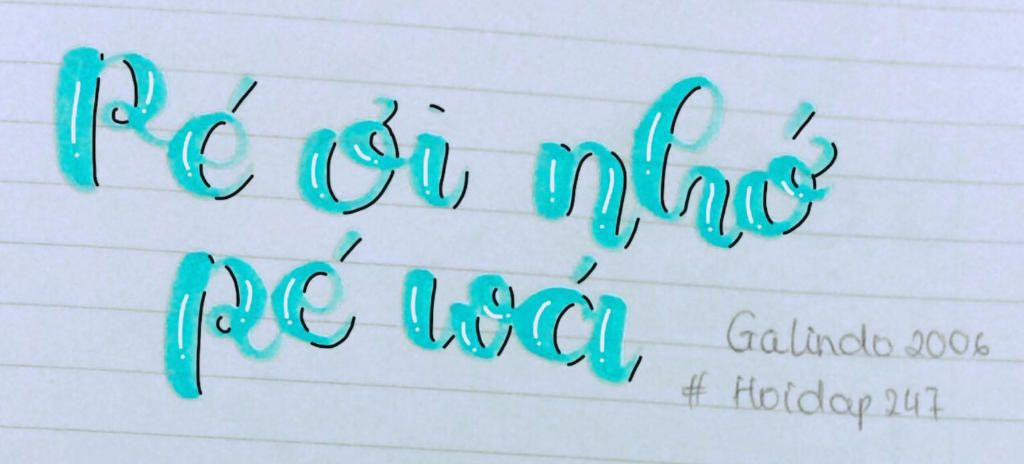 Pé ơi nhớ
pé wá
Galindo 2006
# Hoidap 247